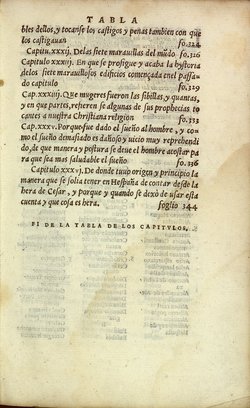 TABLA
bles dellos, y tocanse los castigos y penas tambien con que
los castigauan fo. 322
Capitu. xxxij. De las siete marauillas del mũdo. fo. 326
Capitulo xxxiij. En que se prosigue y acaba la hystoria
delos siete marauillosos edificios començada en el passa
do capitulo fo. 329
Cap. xxxiiij. Que mugeres fueron las sibillas, y quantas,
y en que partes, refieren se algunas de sus prophecias to
cantes a nuestra Christiana religion fo. 333
Cap. xxxv. Porque fue dado el sueño al hombre, y co-
mo el sueño demasiado es dañoso y vicio muy reprehendi
do, de que manera y postura se deue el hombre acostar pa
ra que sea mas saludable el sueño fo. 336
Capitulo xxxvj. De donde tuuo origen y principio la
manera que se solia tener en Hespaña de contar desdo la
hera de Cesar, y porque y quando se dexò de vsar esta
cuenta y que cosa es hera. foglio 344
FI DE LA TABLA DE LOS CAPITVLOS.